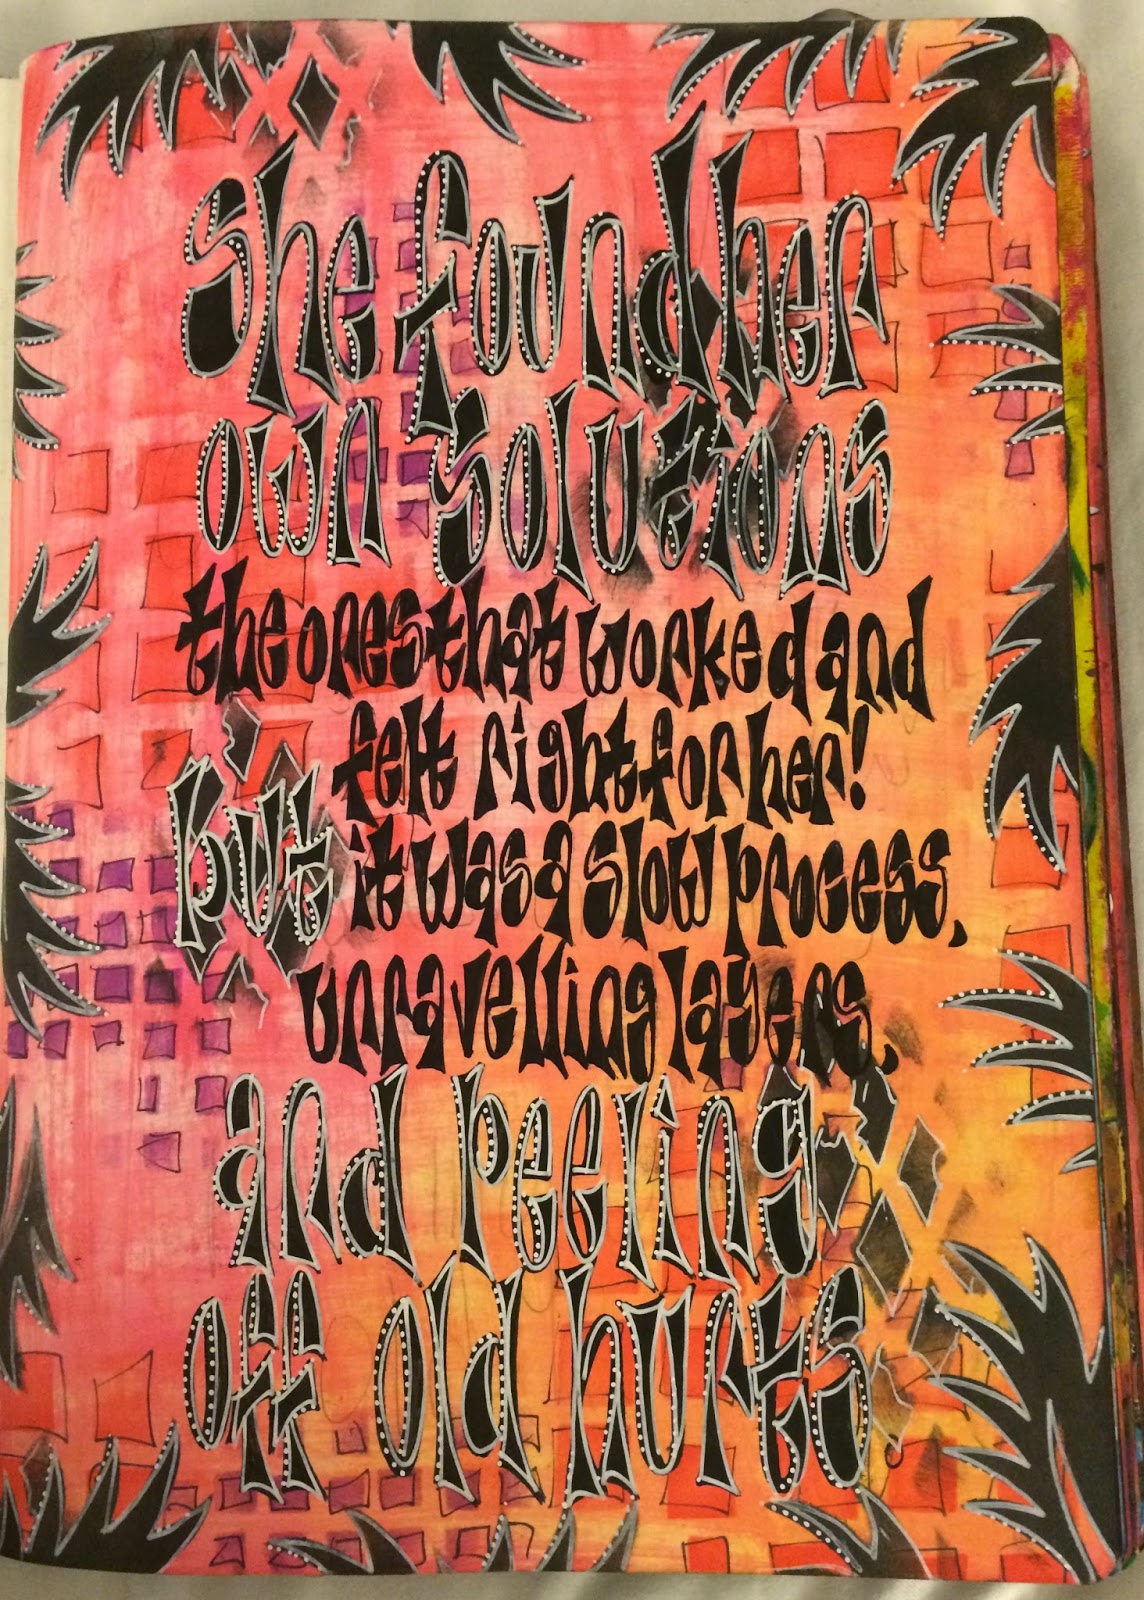 She found her
own solutions
the ones that worked and
felt right for her!
but it was a slow process,
unravelling layers,
and peeling
off old hurts